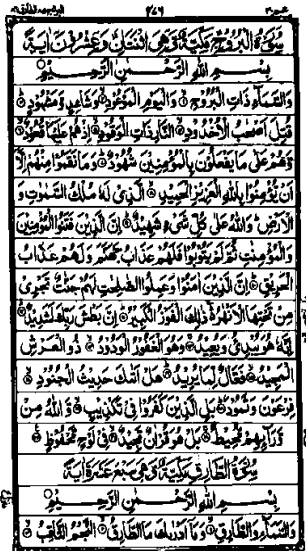 سورة البروج مكية وهي اثنتان وعشرون اية
بسم الله الرحمن الرحيم
والسماء ذات البروج والیوم الموعود وشاهد ومشهود
قتل اصحب الاخدود النار ذات الوقود اذ هم عليها قعود
وهم على ما يفعلون بالمؤمنين شهود وما نقموا منهم الا
ان يؤمنوا بالله العزيز الحميد الذي له ملك السموت و
الارض والله على كل شيء شهيد ان الذين فتنوا المؤمنين
والمؤمنت ثم لم يتوبوا فلهم عذاب جهنم ولهم عذاب
الحريق ان الذين امنوا وعملوا الصلحت لهم جنت تجري
من تحتها الانهر ذلك الفوز الكبير ان بطش ربك لشديد
انه هو يبدئ ويعيد وهو الغفور الودود ذو العرش
المجيد فعال لما يريد هل اتىك حديث الجنود
فرعون وثمود بل الذين كفروا في تكذيب والله من
ورائهم محيط بل هو قران مجيد في لوح محفوظ
سورة الطارق مكية وهي سبع عشرة اية
بسم الله الرحمن الرحيم
والسماء والطارق وما ادرىك ما الطارق النجم الثاقب